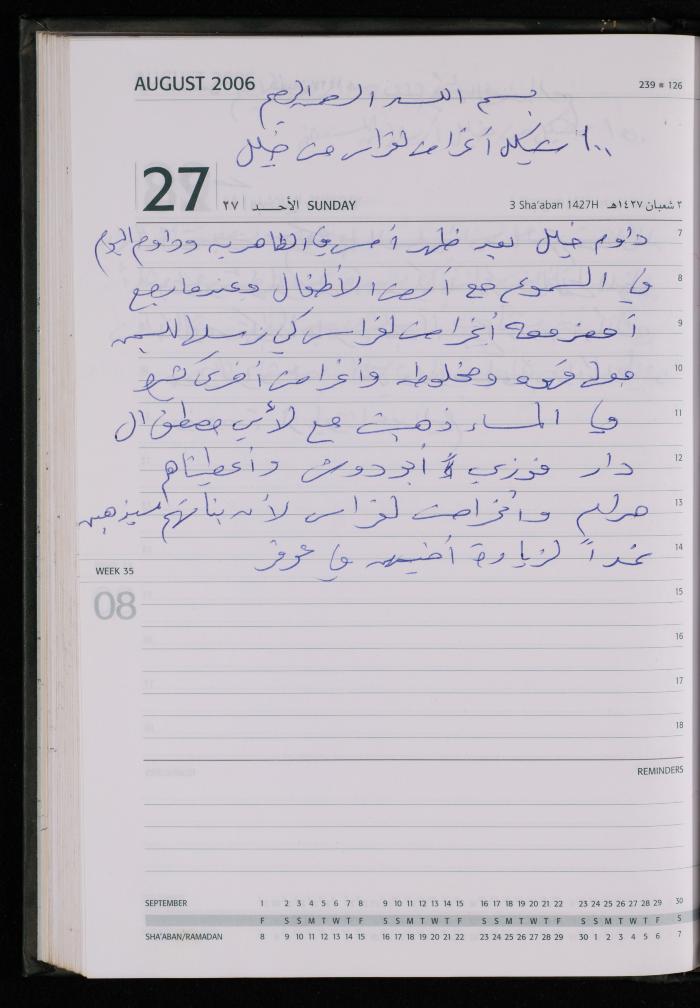 AUGUST 2006
239 ■ 126
بسم الله الرحمن الرحيم
١٠٠ شيكل أغراض لفراس من خليل
27 ٢٧ الأحــد SUNDAY
3 Sha'aban 1427H ٣ شعبان ١٤٢٧هـ
7 داوم خليل بعد ظهر أمس في الظاهرية وداوم اليوم
8 في السموع مع الأطفال وعندما رجع
9 أحضر معه أغراض لفراس كي نرسلها للسجن
10 قهوة ومخلوطة وأغراض أخرى كثيرة
11 في المساء ذهبت مع لأبي مصطفى ال
12 دار فوزي أبو دوش وأعطيناهم
13 وأغراض لفراس لأن بناتهم سيذهبن
14 غداً لزيارة في عوفر
WEEK 35
08
15
16
17
18
REMINDERS
SEPTEMBER 1 2 3 4 5 6 7 8 9 10 11 12 13 14 15 16 17 18 19 20 21 22 23 24 25 26 27 28 29 30
F S S M T W T F S S M T W T F S S M T W T F S S M T W T F S
SHA'ABAN/RAMADAN 8 9 10 11 12 13 14 15 16 17 18 19 20 21 22 23 24 25 26 27 28 29 30 1 2 3 4 5 6 7